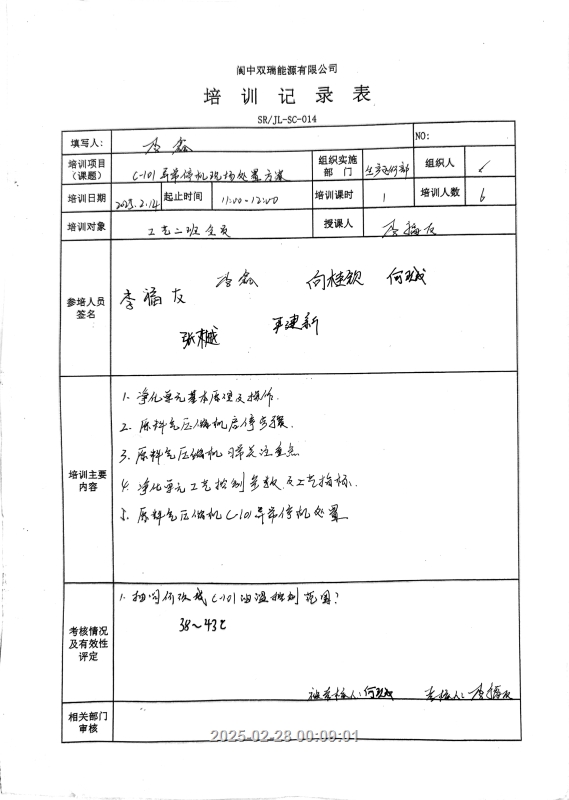 阆中双瑞能源有限公司
培训记录表
SR/JL-SC-014
填写人： 李鑫 NO:
培训项目（课题） C-101异常停机现场处置方案 组织实施部门 生产运行部 组织人
培训日期 2025.2.14 起止时间 11:00-12:00 培训课时 1 培训人数 6
培训对象 工艺二班全员 授课人 李福友
参培人员签名 李福友 李鑫 向桂钦 何玖城
张樾 王建新
培训主要内容
1. 净化单元基本原理及操作.
2. 原料气压缩机启停步骤.
3. 原料气压缩机日常关注重点
4. 净化单元工艺控制参数及工艺指标.
5. 原料气压缩机C-101异常停机处置
考核情况及有效性评定
1. 抽问何玖城C-101油温控制范围?
38~43℃
被考核人:何玖城 考核人:李福友
相关部门审核
2025-02-28 00:09:01